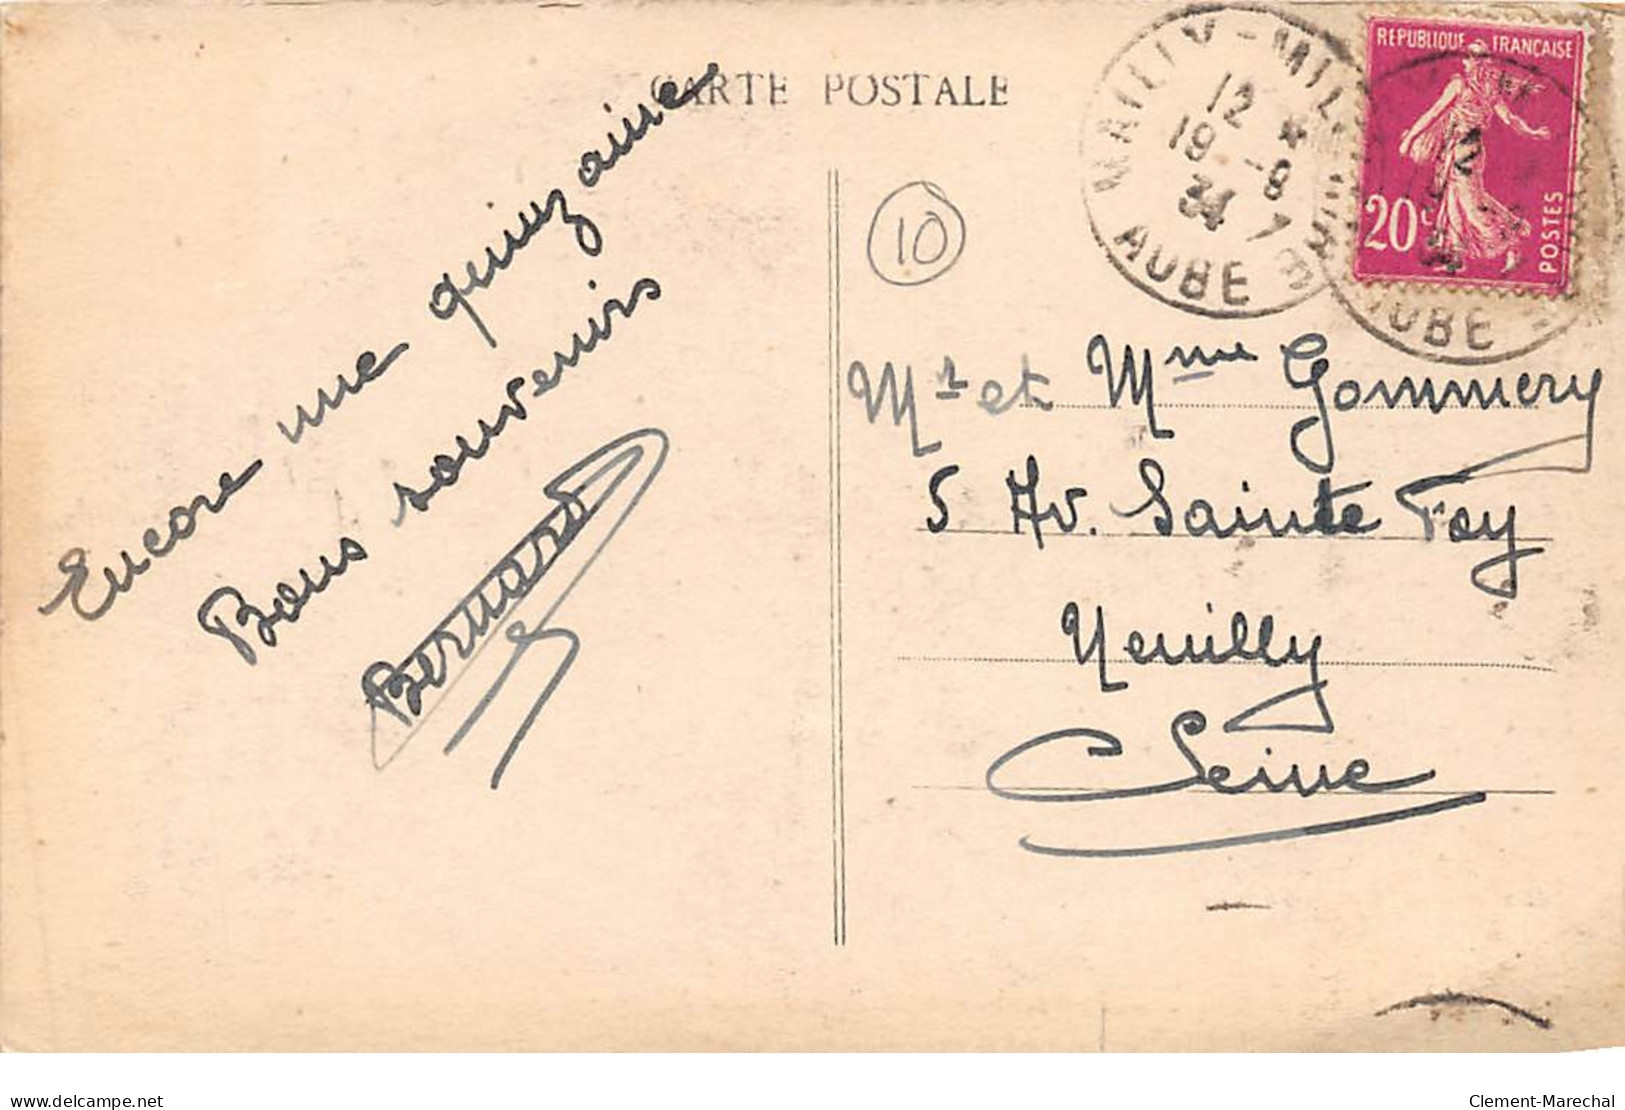 CARTE POSTALE
Encore une quinzaine
Bons souvenirs
Bernard
10
MAILLY-MIL
12
19 -8
34
AUBE
REPUBLIQUE FRANÇAISE
20c
POSTES
12
34
AUBE
Mr et Mme Gommery
5 Av. Sainte Foy
Neuilly
Seine
delcampe.net
Clement-Marechal